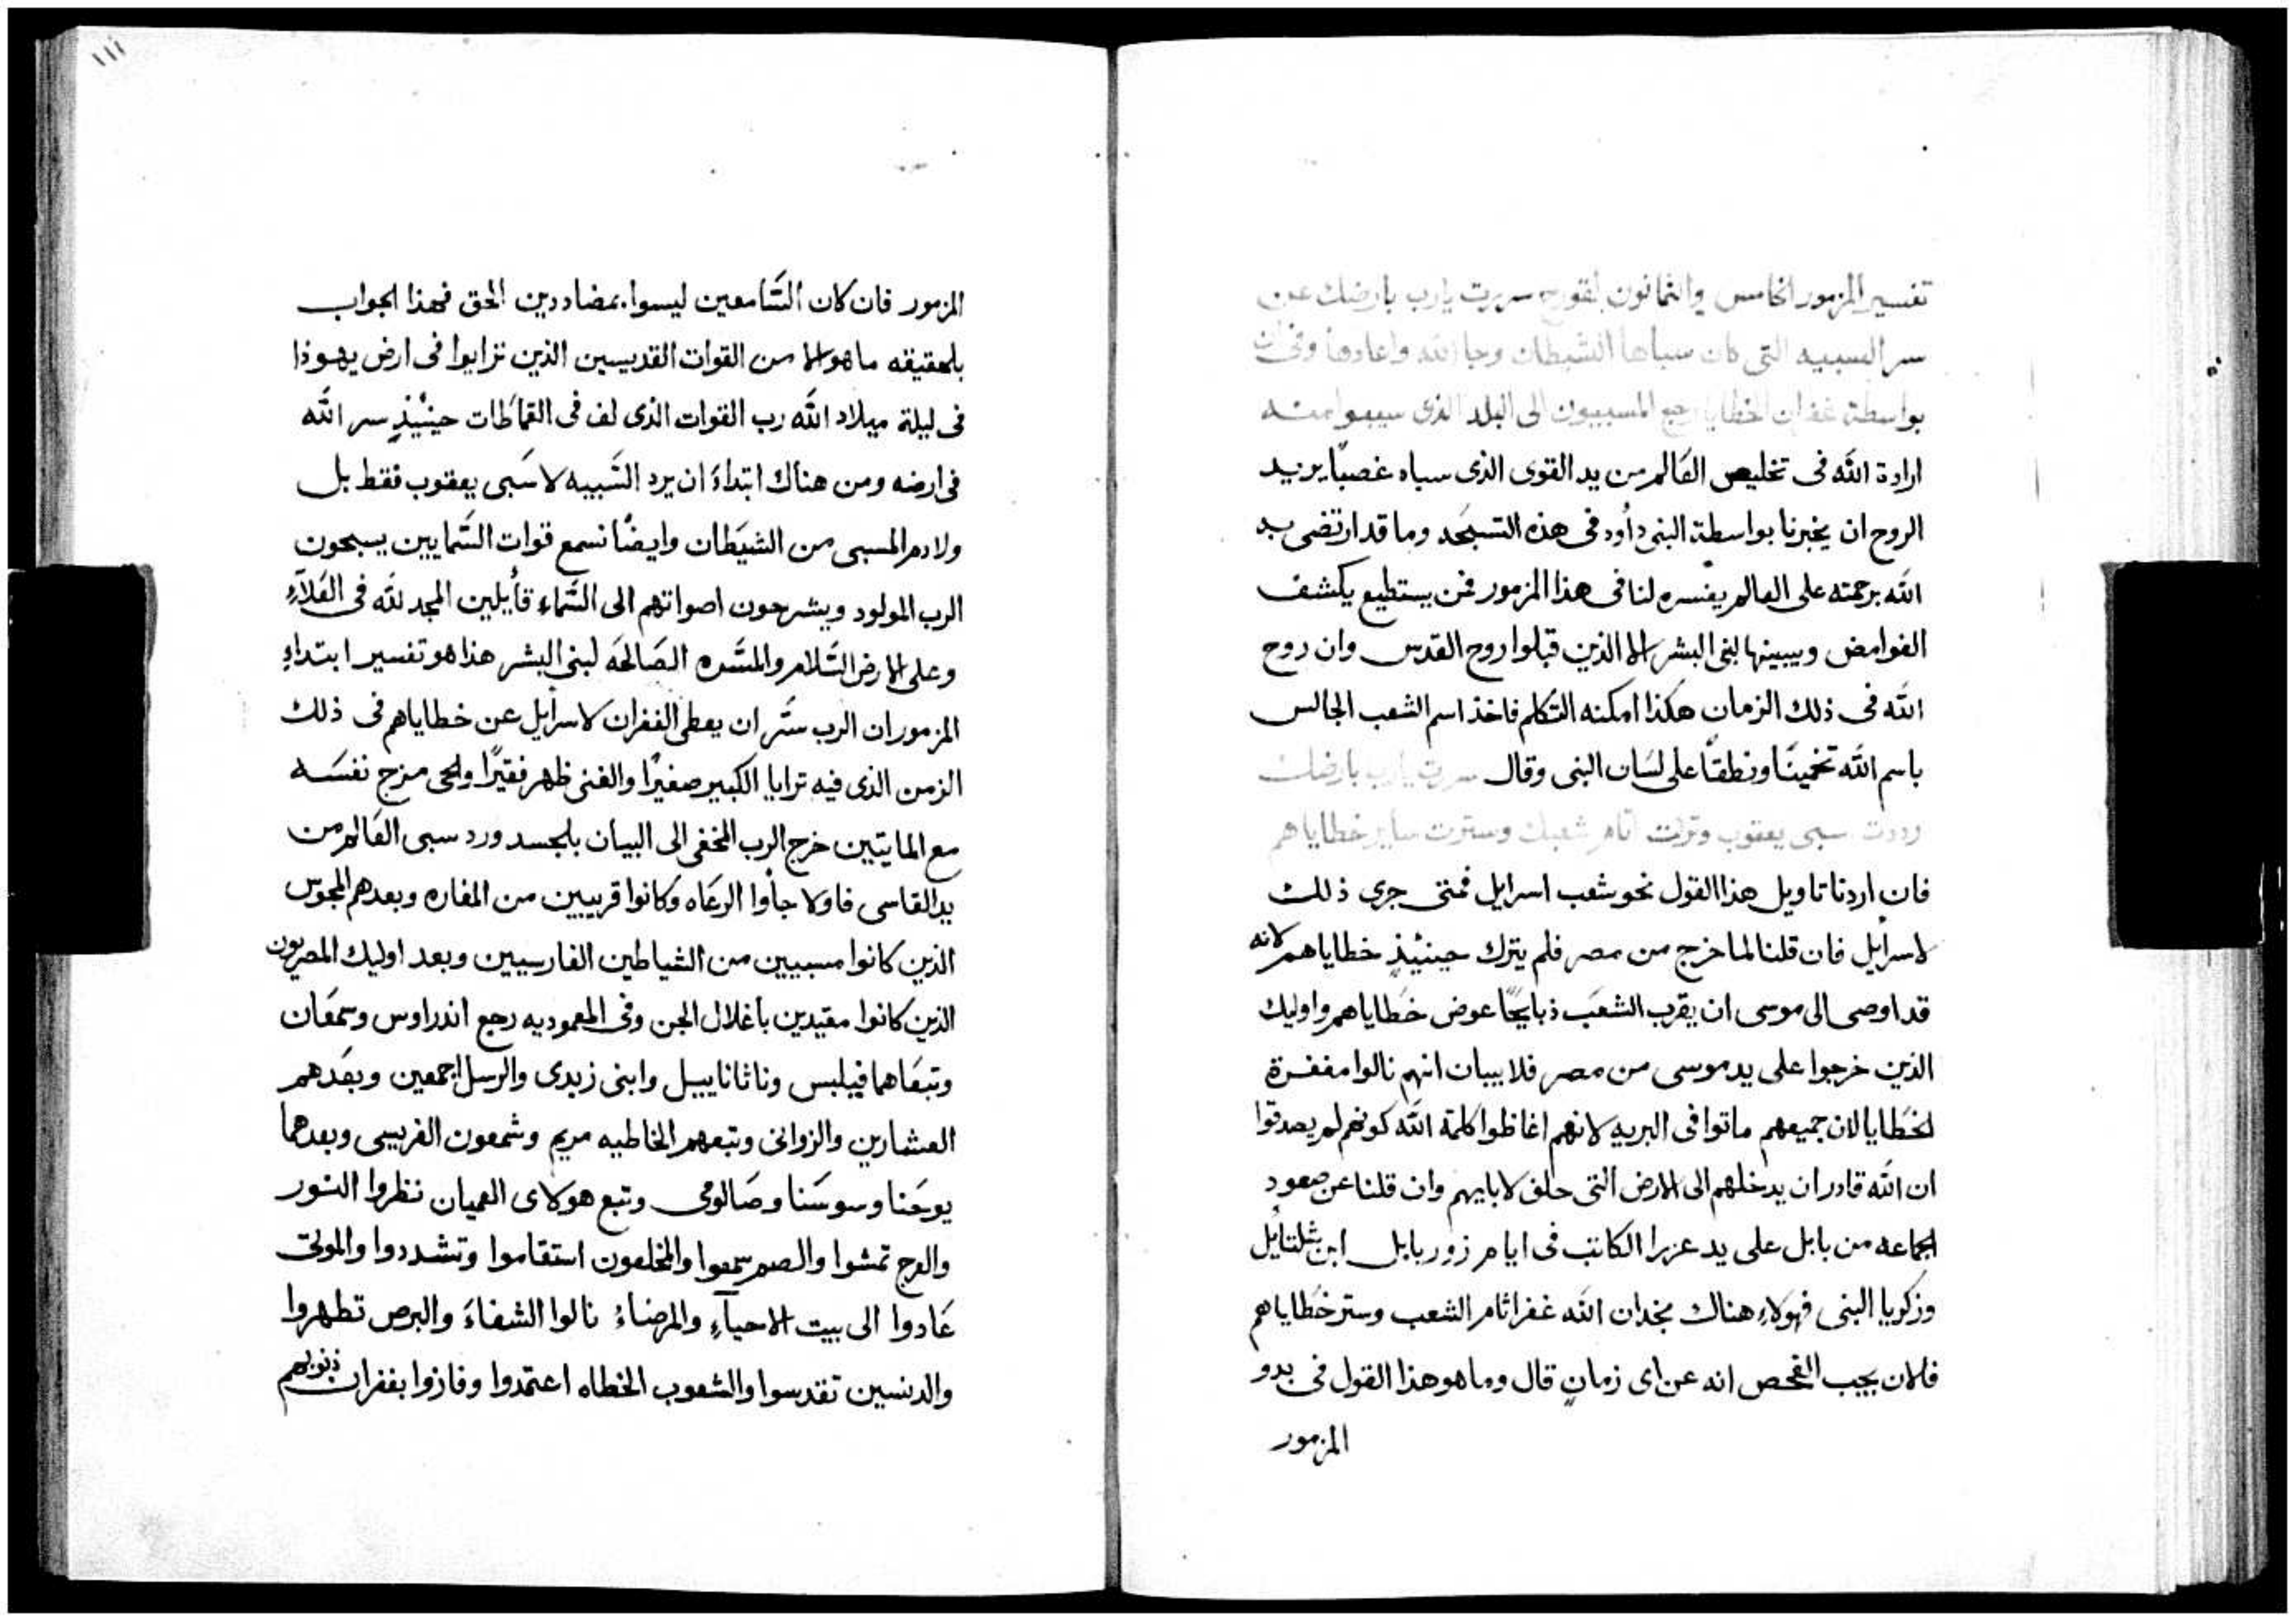 تفسير المزمور الخامس والثمانون بقوله سررت يارب بارضك عن
سر السبيه التى كان سباها الشيطان وجا الله واعادها وفى ان
بواسطة غفران الخطايا رجع المسبيون الى البلد الذى سبيوا منه
ارادة الله فى تخليص العَالم من يد القوى الذى سباه غصبًا يريد
الروح ان يخبرنا بواسطة النبى داود فى هذه التسبحَه وما قد ارتضى به
الله برحمته على العالم يفسره لنا فى هذا المزمور فمن يستطيع يكشف
الغوامض ويبينها لبنى البشر الا الذين قبلوا روح القدس وان روح
الله فى ذلك الزمان هكذا امكنه التكلم فاخذ اسم الشعب الجالس
باسم الله تخمينًا ونطقًا على لسَان النبى وقال سررت يارب بارضك
رددت سبى يعقوب وتركت اثام شعبك وسترت ساير خطاياهم
فان اردنا تاويل هذا القول نحو شعب اسرايل فمتى جرى ذلك
لاسرايل فان قلنا لما خرج من مصر فلم يترك حينئيذٍ خطاياهم لانه
قد اوصى الى موسى ان يقرب الشعَب ذبايحًا عوض خطاياهم واوليك
الذين خرجوا على يد موسى من مصر فلا يبان انهم نالوا مغفرة
الخطايا لان جميعهم ماتوا فى البريه لانهم اغاظوا كلمة الله كونهم لم يصدقوا
ان الله قادر ان يدخلهم الى الارض التى حلف لابايهم وان قلنا عن صعود
الجماعه من بابل على يد عزرا الكاتب فى ايام زوربابل ابن شلتايل
وزكريا النبى فهولاء هناك نجد ان الله غفر اثام الشعب وستر خطاياهم
فلان يجب الفحص انه عن اى زمانٍ قال وما هو هذا القول فى بدو
المزمور
١١١
المزمور فان كان السَّامعين ليسوا بمضاددين الحق فهذا الجواب
بالحقيقه ما هو الا من القوات القديسين الذين تزايوا فى ارض يهوذا
فى ليلة ميلاد الله رب القوات الذى لف فى القماطات حينئيذٍ سر الله
فى ارضه ومن هناك ابتداء ان يرد السَّبيه لا سَبى يعقوب فقط بل
ولادم المسبى من الشيَطان وايضًا نسمع قوات السَّمايين يسبحون
الرب المولود ويشرحون اصواتهم الى السَّماء قأيلين المجد لله فى العَلاَء
وعلى الارض السَّلام والمسَّره الصَالحَه لبنى البشر هذا هو تفسير ابتداء
المزمور ان الرب سَّر ان يعطى الغفران لاسرايل عن خطاياهم فى ذلك
الزمن الذى فيه ترايا الكبير صغيرًا والغنى ظهر فقيرًا والحى مزج نفسَه
مع المايتيين خرج الرب المخفى الى البيان بالجسد ورد سبى العَالم من
يد القاسى فاولا جأوا الرعَاه وكانوا قريبين من المغاره وبعدهم المجوس
الذين كانوا مسبيين من الشياطين الفارسيين وبعد اوليك المصريون
الذين كانوا مقيدين باغلال الجن وفى المعموديه رجع اندراوس وسمعَان
وتبعَاهما فيلبس وناثاناييل وابنى زبدى والرسل اجمعين وبعَدهم
العشارين والزوانى وتبعهم الخاطيه مريم وشمعون الفريسى وبعدهما
يوحَنا وسوسَنا وصَالومى وتبع هولاى العميان نظروا النور
والعرج تمشوا والصم سمعوا والمخلعون استقاموا وتشددوا والموتى
عَادوا الى بيت الاحيآءِ والمرضاءُ نالوا الشفاءَ والبرص تطهروا
والدنسين تقدسوا والشعوب الخطاه اعتمدوا وفازوا بغفران ذنوبهم